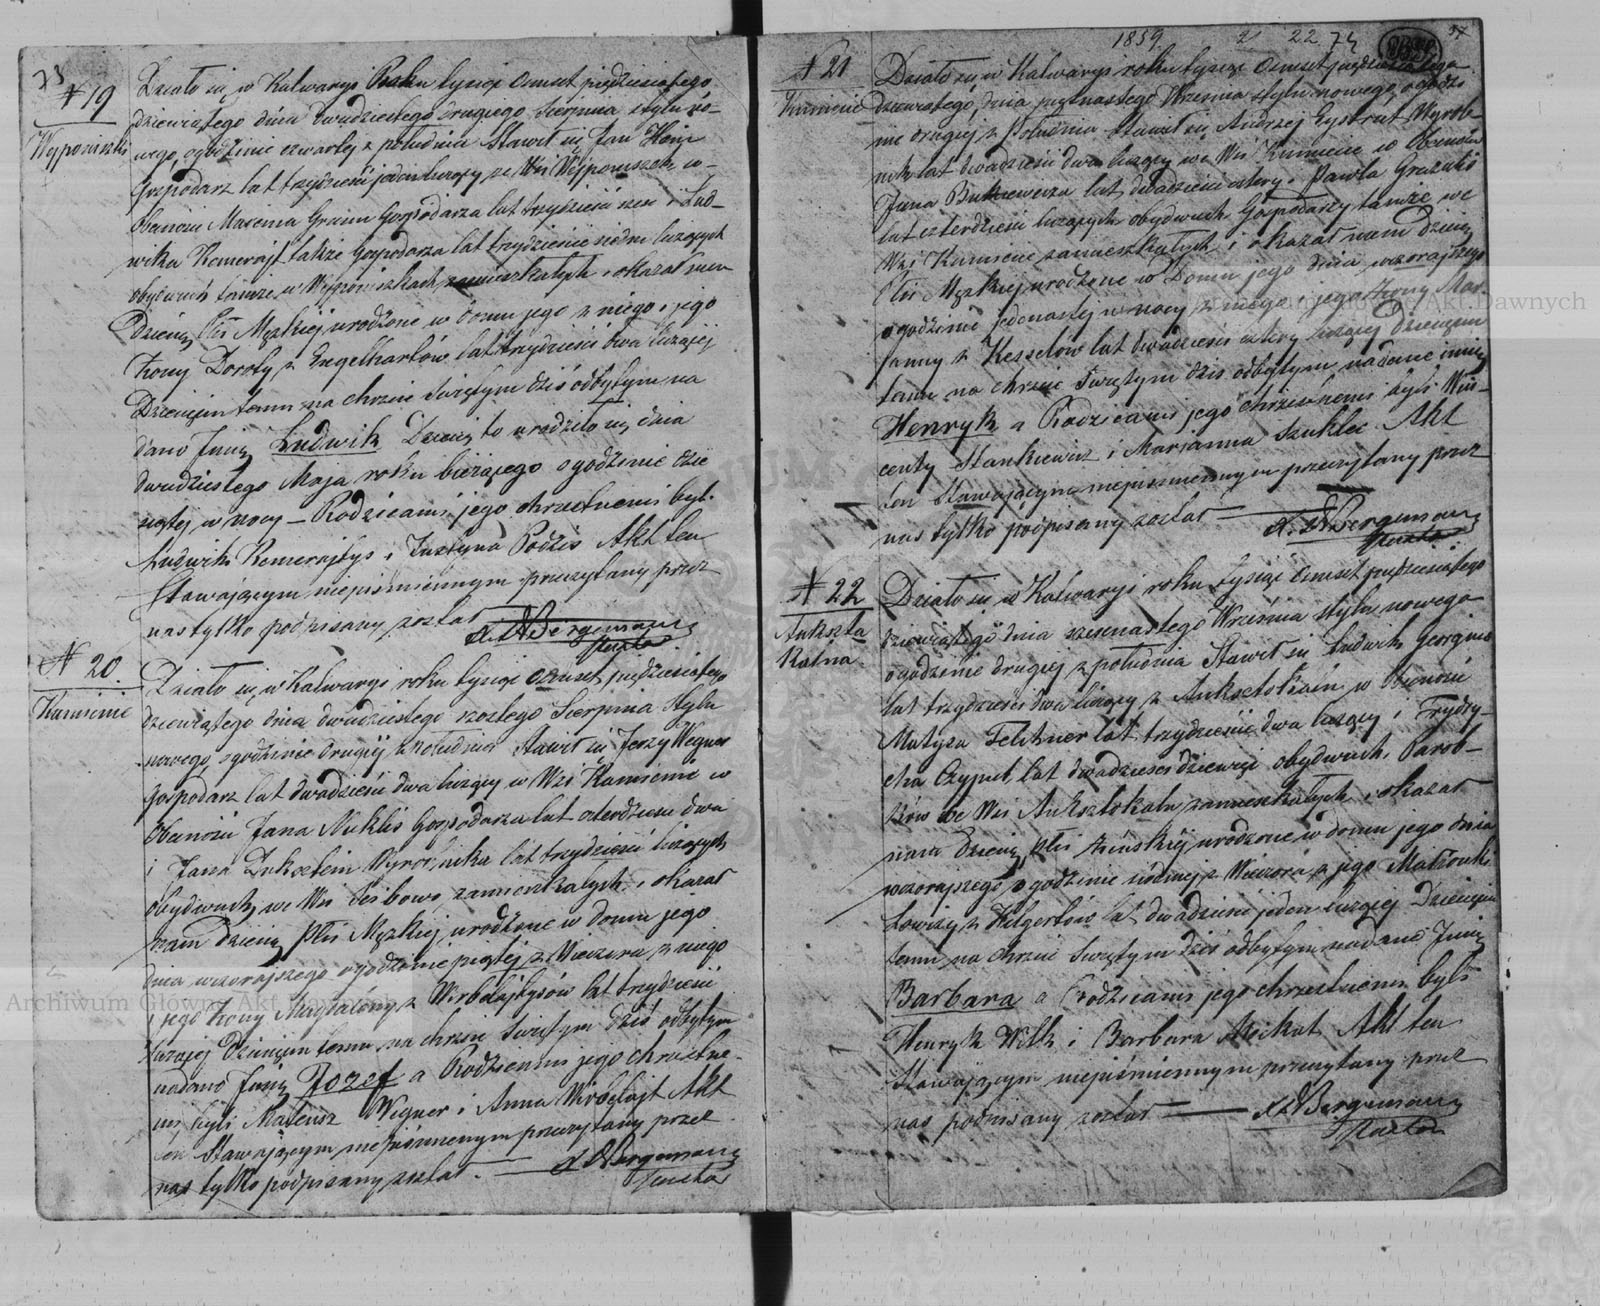 73
N 19
Wyponiszki
Działo się w Kalwaryi Roku tysiąc ośmset pięćdziesiątego
dziewiątego dnia dwudziestego drugiego Sierpnia stylu no-
wego, o godzinie czwartej z południa Stawił się Jan
Gospodarz lat trzydzieści jeden liczący ze Wsi Wyponiszek w o-
becności Marcina Graim Gospodarza lat trzydzieści sześć i Lud-
wika Remerajt także Gospodarza lat trzydzieście siedm liczących
obydwuch tamże w Wyponiszkach zamieszkałych i okazał nam
Dziecię Płci Męzkiej urodzone w domu jego z niego i jego
Żony Doroty z Engelhartów lat trzydzieści dwa liczącej
Dziecięciu temu na chrzcie Świętym dziś odbytym na
dano Imię Ludwik Dziecię to urodziło się dnia
dwudziestego Maja roku bieżącego o godzinie dzie
siątej w nocy — Rodzicami jego chrzestnemi byli
Ludwik Remerajtys i Justyna Podzis Akt ten
Stawającym niepiśmiennym przeczytany przez
nas tylko podpisany został
X. A Bergemann
Pastor
N 20.
Kamienie
Działo się w Kalwaryi roku tysiąc ośmset pięćdziesiątego
dziewiątego dnia dwudziestego szóstego Sierpnia Stylu
nowego, o godzinie drugiej z południa Stawił się Jerzy Wegner
Gospodarz lat dwadzieścia dwa liczący w Wsi Kamienie w
Obecności Jana Nuklis Gospodarza lat czterdzieści dwa
i Jana Dukształm Wyrobnika lat trzydzieści liczących
obydwuch we Wsi zamieszkałych, i okazał
nam Dziecię Płci Męzkiej urodzone w domu jego
dnia wczorajszego o godzinie piątej z Wieczora z niego
i jego Żony Magdaleny z Wirbelajtysów lat trzydzieści
liczącej Dziecięciu temu na chrzcie Świętym dziś odbytym
nadano Imię Jozef a Rodzicami jego chrzestne-
mi byli Mateusz Wegner i Anna Wirbelajt Akt
ten Stawającym niepiśmiennym przeczytany przez
nas tylko podpisany został.
X A Bergemann
Pastor
1859. 21 22 74 37
N 21
Kamienie
Działo się w Kalwaryi roku tysiąc ośmset pięćdziesiątego
dziewiątego, dnia piętnastego Września stylu nowego, o godzi
nie drugiej z południa Stawił się Andrzej Wyrob-
nik lat dwadzieścia dwa liczący we Wsi Kamienie w Obecności
Jana Bukiewicza lat dwadzieścia cztery, Pawła Grażulis
lat czterdzieści liczących obydwuch Gospodarzy tamże we
Wsi Kamienie zamieszkałych i okazał nam Dziecię
Płci Męzkiej urodzone w Domu jego dnia wczorajszego
o godzinie jedenastej w nocy z niego i jego Żony Mar-
janny z Kesslow lat dwadzieścia cztery liczącej Dziecięciu
temu na chrzcie Świętym dziś odbytym nadane imię
Henryk a Rodzicami jego chrzestnemi byli Win-
centy Stankiewicz i Marjanna Szuklec Akt
ten Stawającym niepiśmiennym przeczytany przez
nas tylko podpisany został
X. A Bergemann
Pastor
N 22
Auksztá
Kalna
Działo się w Kalwaryi roku tysiąc ośmset pięćdziesiątego
dziewiątego dnia szesnastego Września stylu nowego
o godzinie drugiej z południa Stawił się Ludwik Georginus
lat trzydzieści dwa liczący z Auksztokaln w Obecności
Matysa Felchner lat trzydzieści dwa liczący i Frydry-
cha Czyput lat dwadzieścia dziewięć obydwuch Parob-
ków we Wsi Auksztokaln zamieszkałych, i okazał
nam Dziecię płci Żeńskiej urodzone w domu jego dnia
wczorajszego o godzinie siódmej z Wieczora z jego Małżonki
Lowizy z Hilgertów lat dwadzieścia jeden liczącej Dziecięciu
temu na chrzcie Świętym dziś odbytym nadano Imię
Barbara a Rodzicami jego chrzestnemi byli
Henryk Wilk i Barbara Mejkat Akt ten
Stawającym niepiśmiennym przeczytany przez
nas podpisany został
X A Bergemann
Pastor
Archiwum Główne Akt Dawnych
Archiwum Główne Akt Dawnych